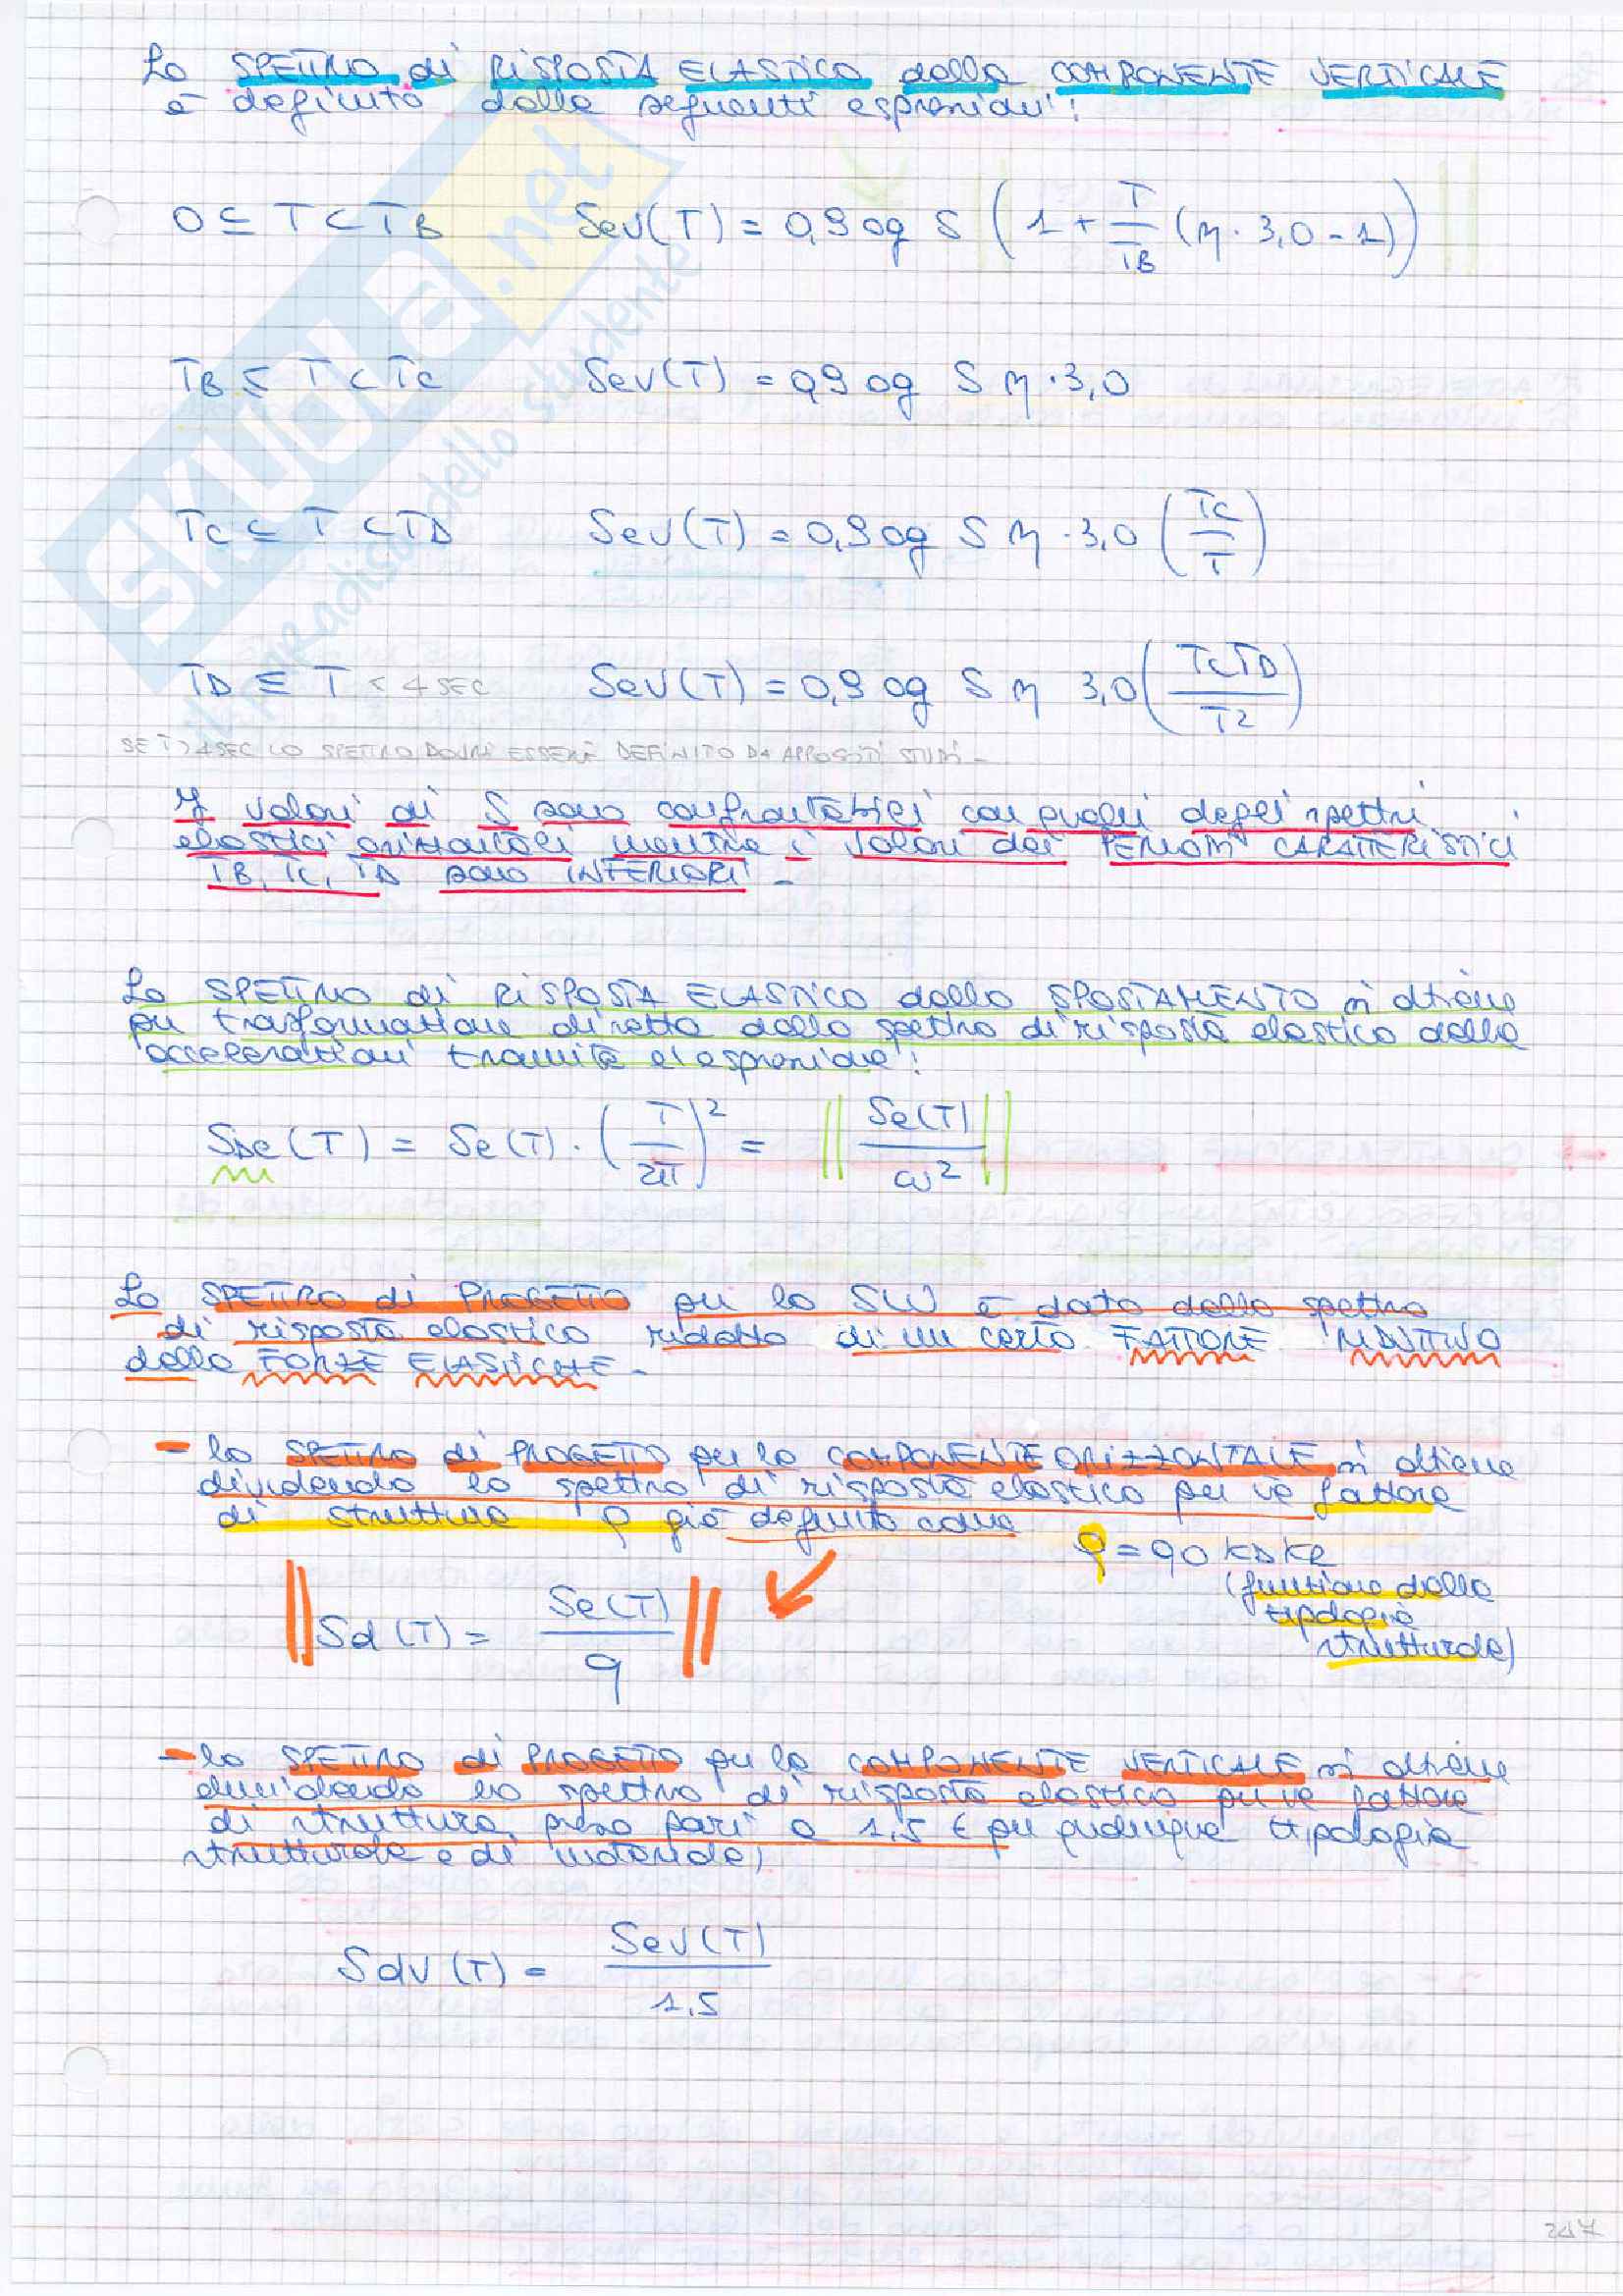 Lo SPETTRO di RISPOSTA ELASTICO della COMPONENTE VERTICALE
è definito dalle seguenti espressioni:
0 ≤ T < TB Sev(T) = 0,9 ag S (1 + T/TB (η · 3,0 - 1))
TB ≤ T < TC Sev(T) = 0,9 ag S η · 3,0
TC ≤ T < TD Sev(T) = 0,9 ag S η · 3,0 (TC/T)
TD ≤ T < 4 SEC Sev(T) = 0,9 ag S η 3,0 (TCTD/T²)
SE T > 4SEC LO SPETTRO DOVRÀ ESSERE DEFINITO DA APPOSITI STUDI -
I valori di S sono confrontabili con quelli degli spettri
elastici orizzontali mentre i valori dei PERIODI CARATTERISTICI
TB, TC, TD sono INFERIORI -
Lo SPETTRO di RISPOSTA ELASTICO dello SPOSTAMENTO si ottiene
per trasformazione diretta dello spettro di risposta elastico delle
accelerazioni tramite l'espressione:
SDe(T) = Se(T) · (T/2π)² = Se(T)/ω²
Lo SPETTRO di PROGETTO per lo SLU è dato dallo spettro
di risposta elastico ridotto di un certo FATTORE RIDUTTIVO
delle FORZE ELASTICHE -
- lo SPETTRO di PROGETTO per la COMPONENTE ORIZZONTALE si ottiene
dividendo lo spettro di risposta elastico per il fattore
di struttura q già definito come
q = q0 KD KR
(funzione della
tipologia
strutturale)
Sd(T) = Se(T)/q
- lo SPETTRO di PROGETTO per la COMPONENTE VERTICALE si ottiene
dividendo lo spettro di risposta elastico per il fattore
di struttura, preso pari a 1,5 (per qualunque tipologia
strutturale e di materiale)
Sdv(T) = Sev(T)/1,5
247
SKUOLA.net
il paradiso dello studente